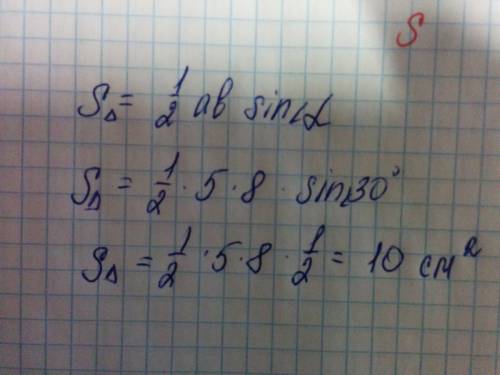 S
S△ = 1/2 ab sin∠α
S△ = 1/2 · 5 · 8 · sin 30°
S△ = 1/2 · 5 · 8 · 1/2 = 10 см²